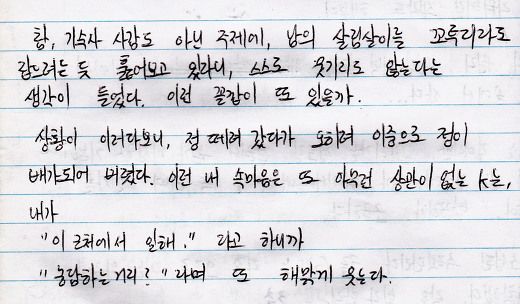 참, 기숙사 사감도 아닌 주제에, 남의 살림살이를 꼬투리라도
잡으려는 듯 훑어보고 있다니, 스스로 웃기지도 않는다는
생각이 들었다. 이런 꼴값이 또 있을까.
상황이 이러다보니, 정 떼려 갔다가 오히려 이중으로 정이
배가되어 버렸다. 이런 내 속마음은 또 아무런 상관이 없는 K는,
내가
"이 근처에서 일해." 라고 하니까
"농담하는거리?" 라며 또 해맑게 웃는다.